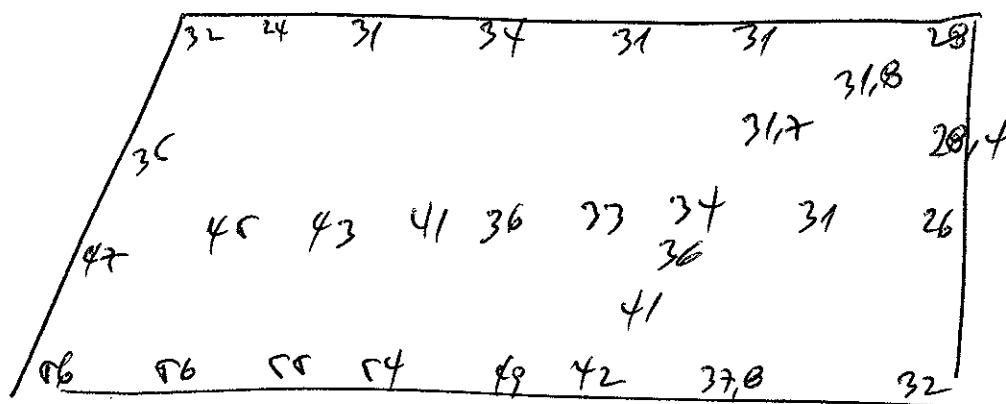 32 24 31 34 31 31 28
31,8
31,7
36 28,4
45 43 41 36 33 34 31 26
47 36
41
56 56 55 54 49 42 37,8 32